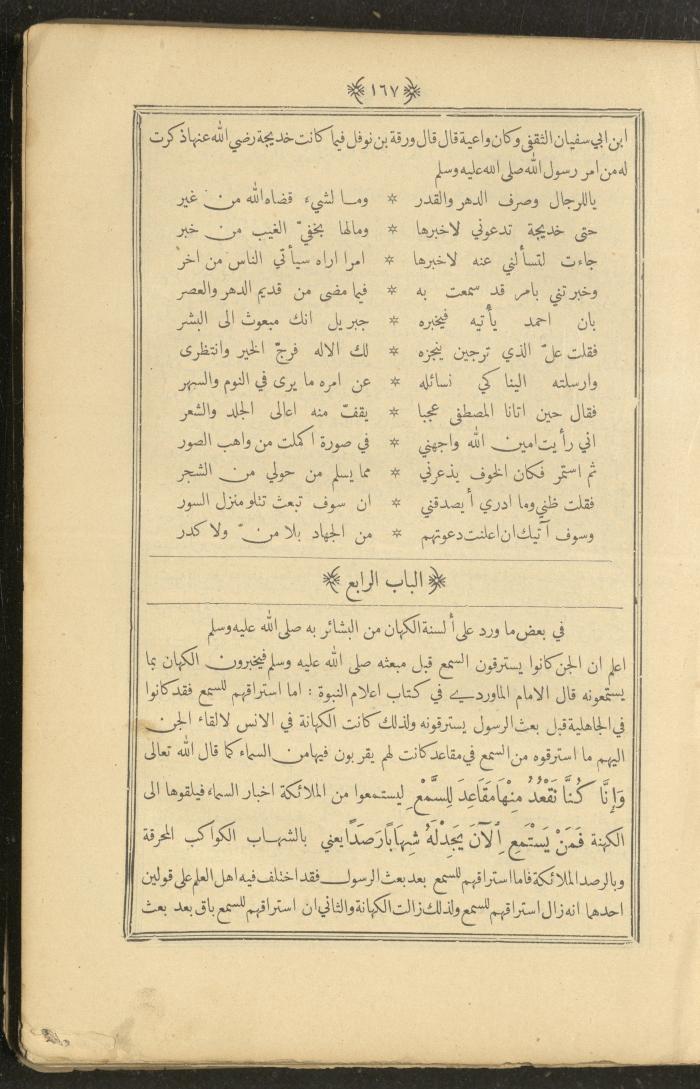 ١٦٧
ابن ابي سفيان الثقفي وكان واعية قال قال ورقة بن نوفل فيما كانت خديجة رضي الله عنها ذكرت
له من امر رسول الله صلى الله عليه وسلم
ياللرجال وصرف الدهر والقدر * وما لشيء قضاه الله من غير
حتى خديجة تدعوني لاخبرها * ومالها بخفيّ الغيب من خبر
جاءت لتسألني عنه لاخبرها * امرا اراه سيأتي الناس من اخر
وخبرتني بامر قد سمعت به * فيما مضى من قديم الدهر والعصر
بان احمد يأتيه فيخبره * جبريل انك مبعوث الى البشر
فقلت علّ الذي ترجين ينجزه * لك الاله فرجّ الخير وانتظرى
وارسلته الينا كي نسائله * عن امره ما يرى في النوم والسهر
فقال حين اتانا المصطفى عجبا * يقفّ منه اعالى الجلد والشعر
اني رأيت امين الله واجهني * في صورة اكملت من واهب الصور
ثم استمر فكان الخوف يذعرني * مما يسلم من حولي من الشجر
فقلت ظني وما ادري أيصدقني * ان سوف تبعث تتلو منزل السور
وسوف آتيك ان اعلنت دعوتهم * من الجهاد بلا منّ ولا كدر
الباب الرابع
في بعض ما ورد على ألسنة الكهان من البشائر به صلى الله عليه وسلم
اعلم ان الجن كانوا يسترقون السمع قبل مبعثه صلى الله عليه وسلم فيخبرون الكهان بما
يستمعونه قال الامام الماوردي في كتاب اعلام النبوة : اما استراقهم للسمع فقد كانوا
في الجاهلية قبل بعث الرسول يسترقونه ولذلك كانت الكهانة في الانس لالقاء الجن
اليهم ما استرقوه من السمع في مقاعد كانت لهم يقربون فيها من السماء كما قال الله تعالى
وَإِنَّا كُنَّا نَقْعُدُ مِنْهَا مَقَاعِدَ لِلسَّمْعِ ليستمعوا من الملائكة اخبار السماء فيلقوها الى
الكهنة فَمَنْ يَسْتَمِعِ ٱلْآنَ يَجِدْ لَهُ شِهَابًا رَصَدًا يعني بالشهاب الكواكب المحرقة
وبالرصد الملائكة فاما استراقهم للسمع بعد بعث الرسول فقد اختلف فيه اهل العلم على قولين
احدهما انه زال استراقهم للسمع ولذلك زالت الكهانة والثاني ان استراقهم للسمع باق بعد بعث